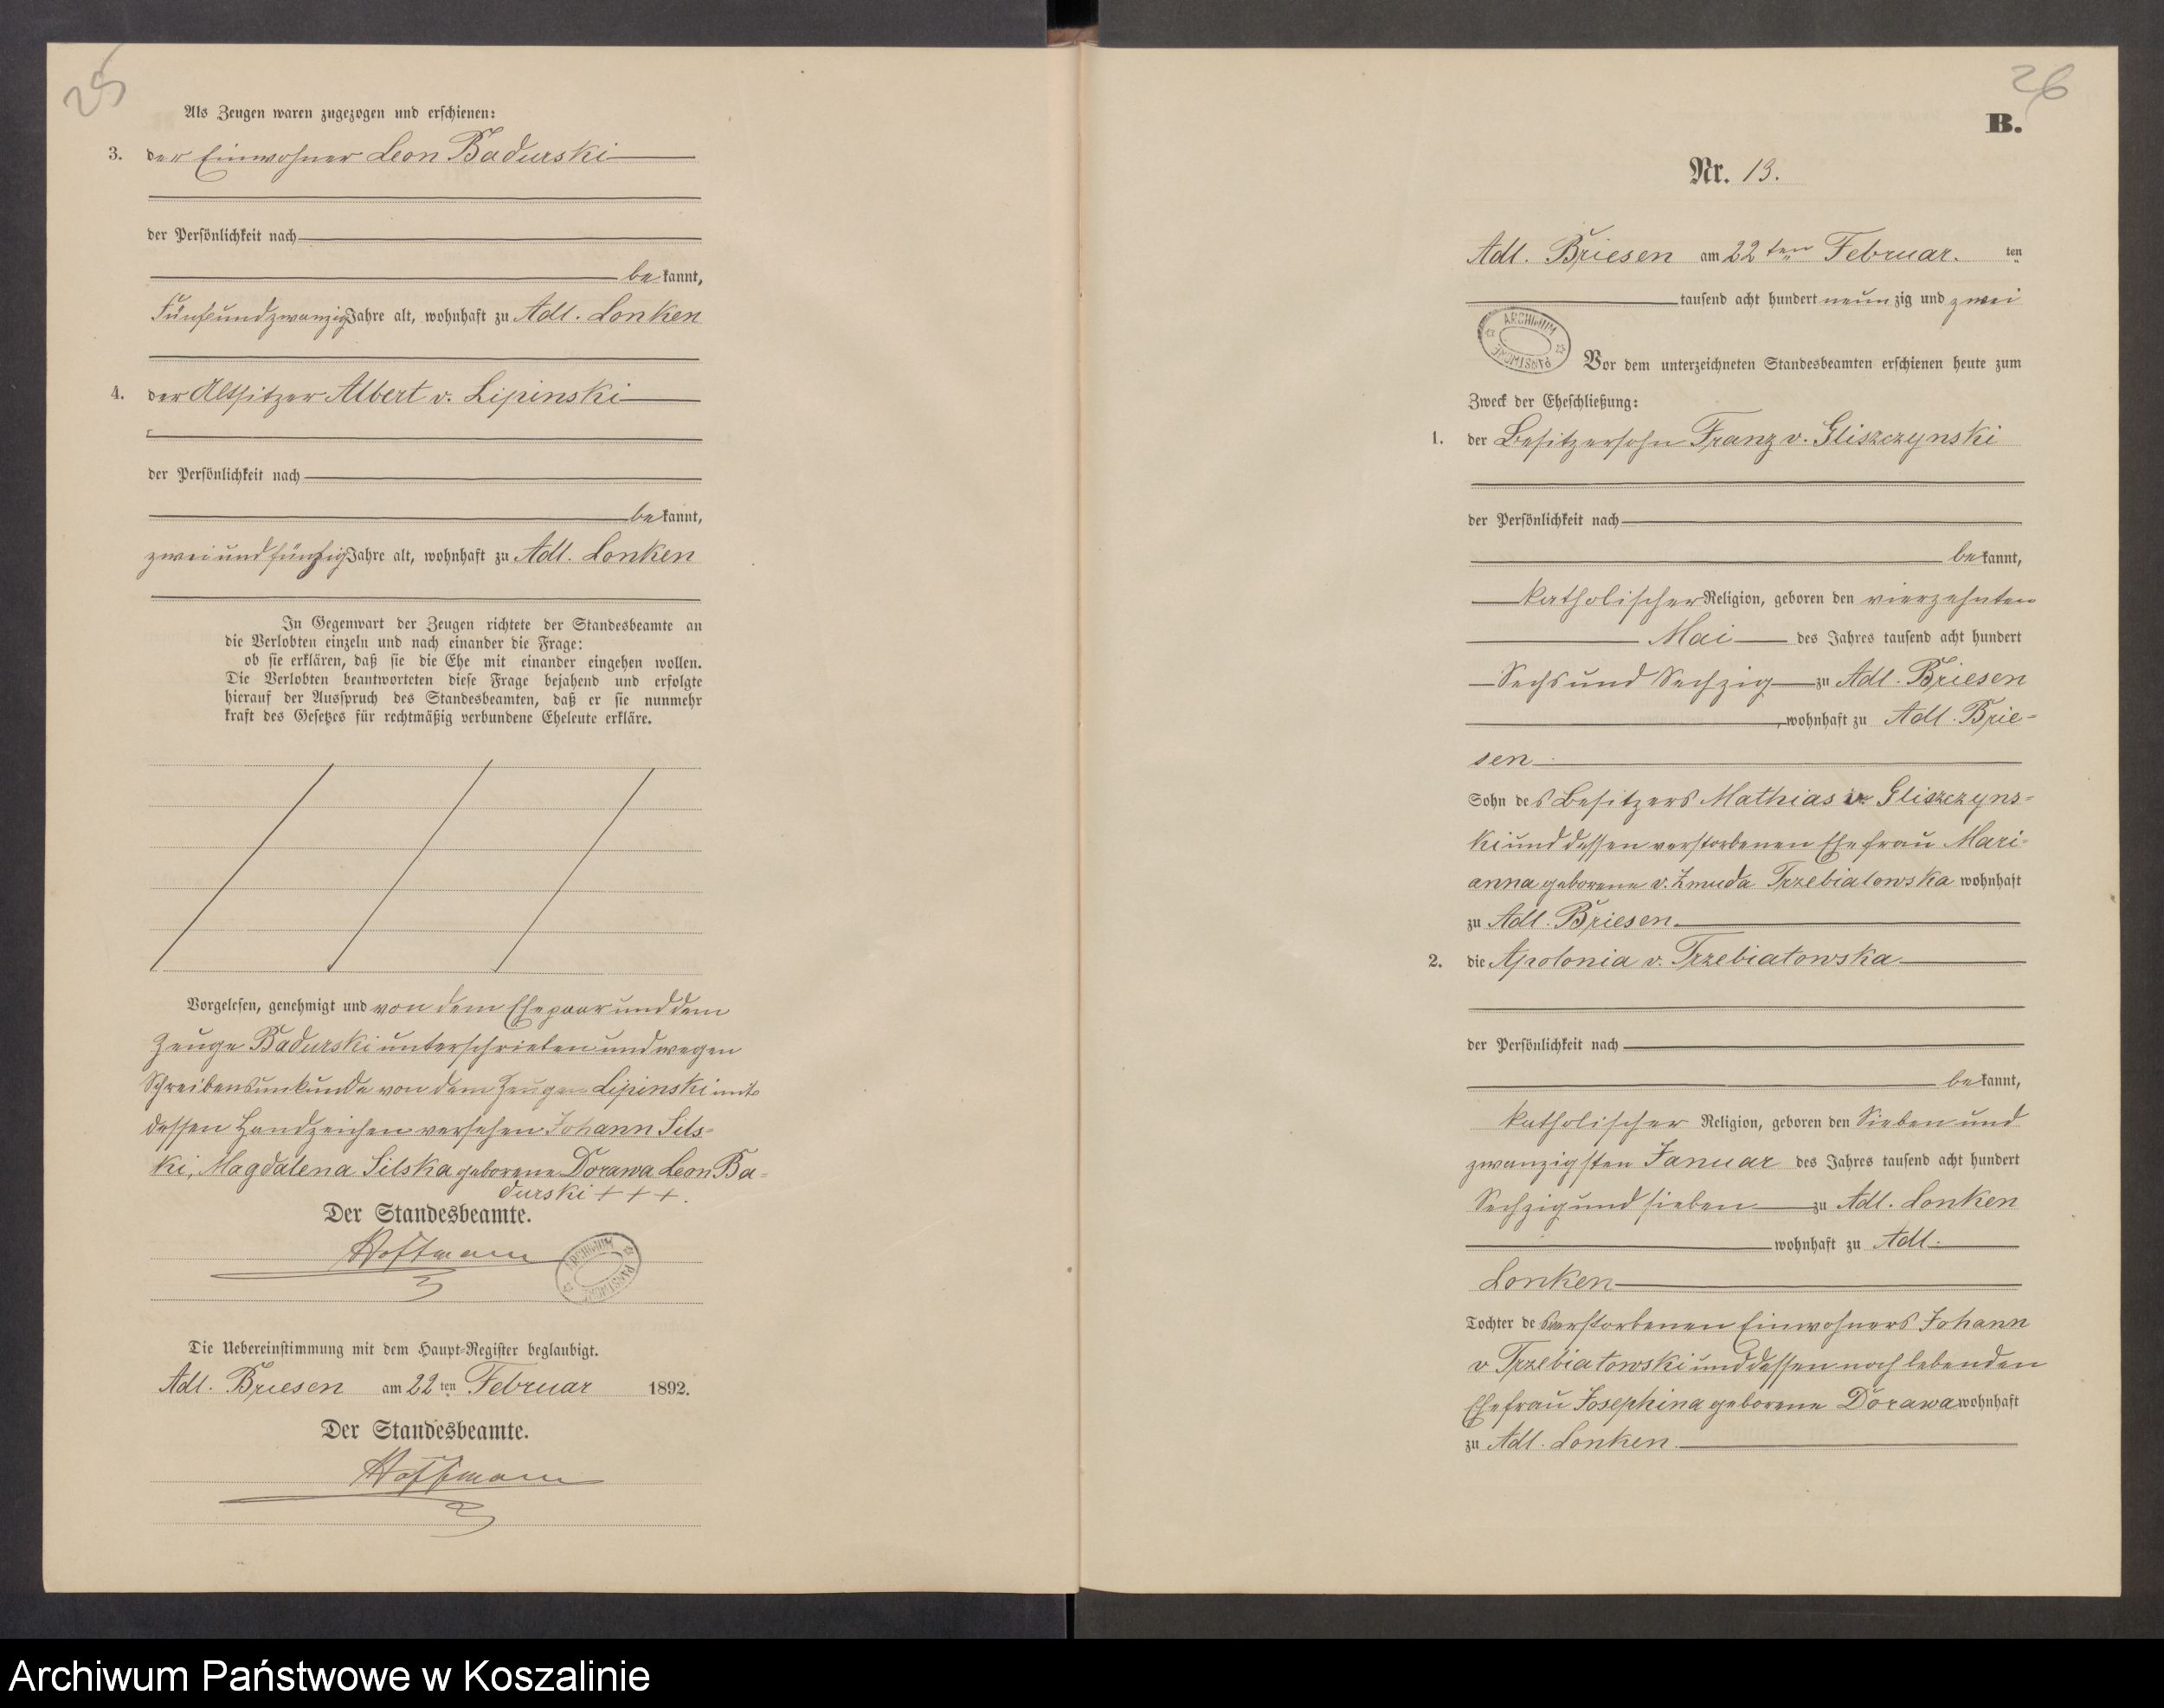 25
Als Zeugen waren zugezogen und erschienen:
3. der Einwohner Leon Badurski
der Persönlichkeit nach
be kannt,
Fünfundzwanzig Jahre alt, wohnhaft zu Adl. Lonken
4. der Altsitzer Albert v. Lipinski
der Persönlichkeit nach
be kannt,
zweiundfünfzig Jahre alt, wohnhaft zu Adl. Lonken
In Gegenwart der Zeugen richtete der Standesbeamte an
die Verlobten einzeln und nach einander die Frage:
ob sie erklären, daß sie die Ehe mit einander eingehen wollen.
Die Verlobten beantworteten diese Frage bejahend und erfolgte
hierauf der Ausspruch des Standesbeamten, daß er sie nunmehr
kraft des Gesetzes für rechtmäßig verbundene Eheleute erkläre.
Vorgelesen, genehmigt und von dem Ehepaar und dem
Zeuge Badurski unterschrieben und wegen
Schreibensunkunde von dem Zeugen Lipinski mit
dessen Handzeichen versehen Johann Sils-
ki, Magdalena Silska geborene Dorawa Leon Ba-
durski + + +.
Der Standesbeamte.
Hoffmann
ARCHIWUM PAŃSTWOWE
Die Uebereinstimmung mit dem Haupt-Register beglaubigt.
Adl. Briesen am 22 ten Februar 1892.
Der Standesbeamte.
Hoffmann
26
B.
Nr. 13.
Adl. Briesen am 22 ten Februar. ten
tausend acht hundert neun zig und zwei
ARCHIWUM PAŃSTWOWE
Vor dem unterzeichneten Standesbeamten erschienen heute zum
Zweck der Eheschließung:
1. der Besitzersohn Franz v. Gliszczynski
der Persönlichkeit nach
be kannt,
katholischer Religion, geboren den vierzehnten
Mai des Jahres tausend acht hundert
Sechs und Sechzig zu Adl. Briesen
, wohnhaft zu Adl. Brie-
sen
Sohn des Besitzers Mathias v. Gliszczyns-
ki und dessen verstorbenen Ehefrau Mari-
anna geborene v. Zmuda Trzebiatowska wohnhaft
zu Adl. Briesen.
2. die Apolonia v. Trzebiatowska
der Persönlichkeit nach
be kannt,
katholischer Religion, geboren den Sieben und
zwanzigsten Januar des Jahres tausend acht hundert
Sechzig und sieben zu Adl. Lonken
wohnhaft zu Adl.
Lonken
Tochter des verstorbenen Einwohners Johann
v Trzebiatowski und dessen noch lebenden
Ehefrau Josephina geborene Dorawa wohnhaft
zu Adl. Lonken.
Archiwum Państwowe w Koszalinie